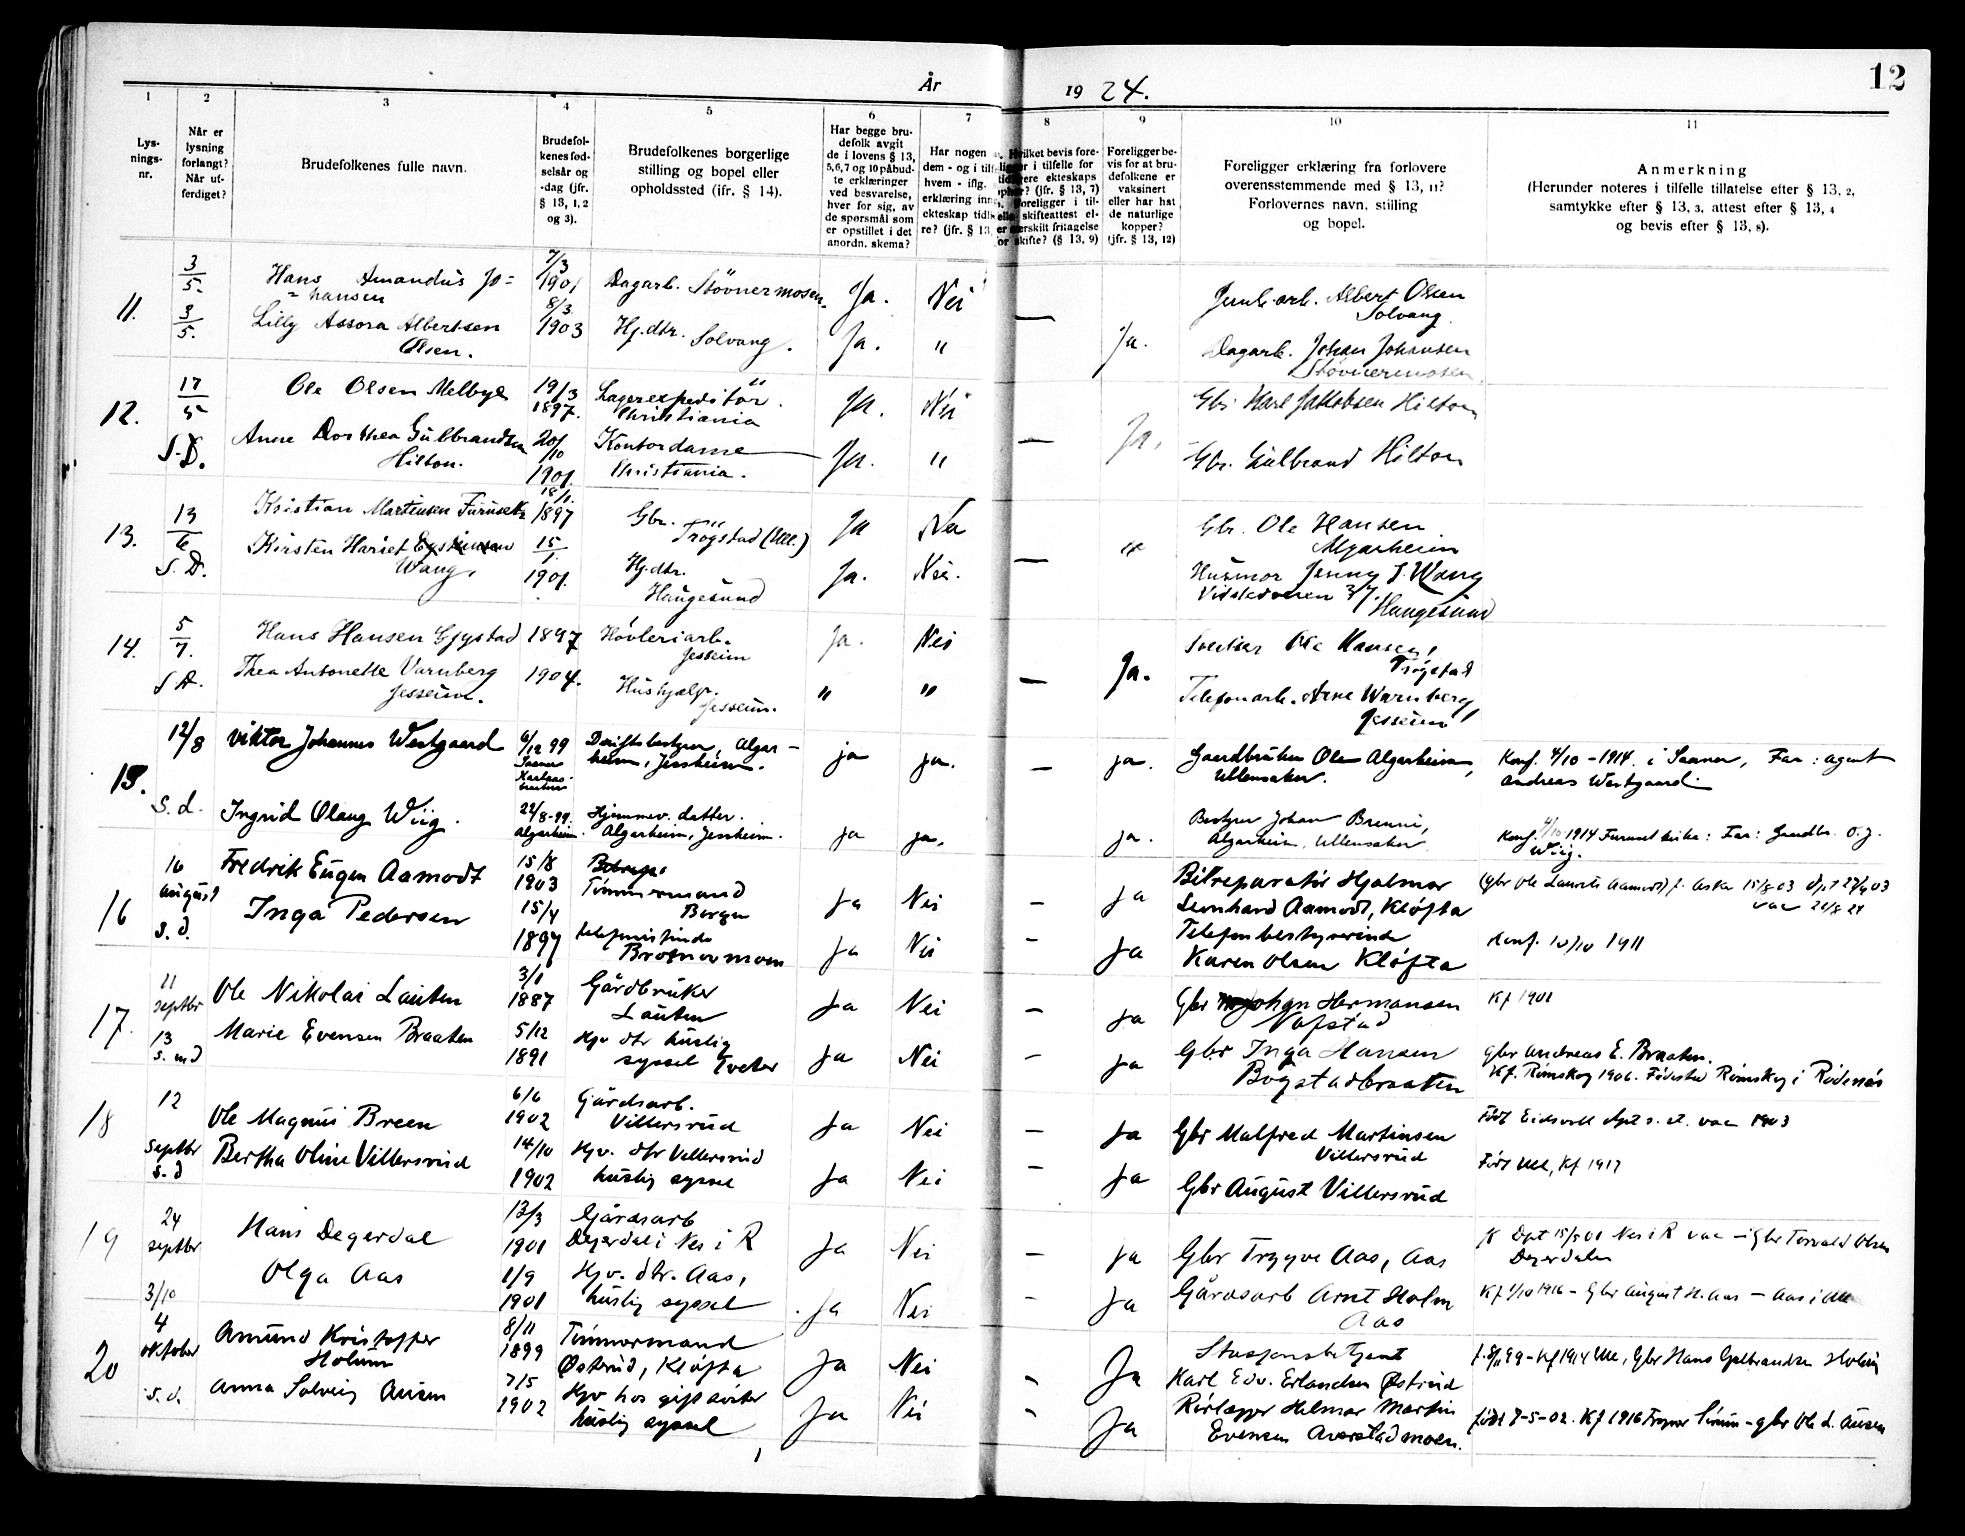 År 1924. 12
1 2 3 4 5 6 7 8 9 10 11
Lys-
nings-
nr.
Når er
lysning
forlangt?
Når ut-
ferdiget?
Brudefolkenes fulle navn.
Brudefol-
kenes fød-
selsår og
-dag (jfr.
§ 13, 1, 2
og 3).
Brudefolkenes borgerlige
stilling og bopel eller
opholdssted (ifr. § 14).
Har begge bru-
defolk avgit
de i lovens § 13,
5, 6, 7 og 10 påbud-
te erklæringer
ved besvarelse,
hver for sig, av
de spørsmål som
er opstillet i det
anordn. skema?
Har nogen
dem - og i tilf
hvem - iflg.
erklæring inn
ekteskap tidl
re? (jfr. § 13,
Hvilket bevis fore-
ligger i tilfelle for
ekteskaps
(jfr. § 13, 7)
Foreligger i til-
skifteattest el-
særskilt fritagelse
for skifte? (§ 13, 9)
Foreligger be-
vis for at bru-
defolkene er
vaksinert
eller har hat
de naturlige
kopper?
(jfr. § 13, 12)
Foreligger erklæring fra forlovere
overensstemmende med § 13, 11?
Forlovernes navn, stilling
og bopel.
Anmerkning
(Herunder noteres i tilfelle tillatelse efter § 13, 2,
samtykke efter § 13, 3, attest efter § 13, 4
og bevis efter § 13, 8).
11. 3/5. Hans Amandus Jo=
=hansen 7/3 1901 Dagarb. Støvnermosen. Ja. Nei — Ja. Albert Olsen
Solvang.
3/5. Lilly Assora Albertsen
Olsen. 8/3 1903 Hj.dtr. Solvang. Ja. " Dagarb. Johan Johansen
Støvnermosen.
12. 17/5 Ole Olsen Melbye 19/3 1897. Lagerexpeditör.
Christiania Ja. Nei — Ja. Gbr. Karl Jakobsen Hilton
S.D. Anne Dorthea Gulbrandsen
Hilton. 20/10 1901. Kontordame
Christiania. Ja. " Gbr. Gulbrand Hilton
13. 13/6 Kristian Martinsen Furuset 18/1. 1897 Gbr.
Trögstad (Ull.) Ja Nei — " Gbr. Ole Hansen
Algarheim
S.D. Kirsten Hariet
Wang. 15/1. 1901. Hj.dtr.
Haugesund Ja. Nei. Husmor Jenny J. Wang
37.
Haugesund
14. 5/7. Hans Hansen Gystad 1897 Høvleriarb.
Jessheim Ja. Nei — Ja. Ole Hansen,
Trögstad
S.D. Thea Antonette Varnberg
Jessheim. 1904. Hushjælp.
Jessheim. " " Telefonarb. Arne Warnberg
Jessheim
15. 12/8 Viktor Johannes Westgaard 6/12 99
Saaner Driftsbestyrer, Algar-
heim, Jessheim. ja ja. — ja. Gaardbruker Ole Algarheim,
Ullensaker. Konf. 4/10 - 1914. i Saaner, Far: agent
Andreas Westgaard.
S.d. Ingrid Olaug Wiig. 22/8-99.
Algarheim. Hjemmev. datter.
Algarheim, Jessheim. ja ja. ja. Bestyrer Johan Brenni,
Algarheim, Ullensaker 4/10 1914 Furuset kirke: Far: Gaardbr. O. J.
Wiig.
16 16
August Fredrik Eugen Aamodt 15/8
1903 Tømmermand
Borgen Ja Nei — Ja Bilreparatör Hjalmar
Leonhard Aamodt, Kløfta (Gbr Ole Laurits Aamodt) f. Aska 15/8 03 Dpt 27/9 03
vac 21/8 24
s.d. Inga Pedersen 15/4
1897 telefonistinde
Brotnormoen Ja Nei — Ja Telefonbestyrerinde
Karen Olsen Kløfta Konf. 10/10 1911
17. 11
septbr Ole Nikolai Lauten 3/1
1887 Gårdbruker
Lauten Ja Nei — Ja Gbr Johan Hermansen
Nafstad Kf 1901
13
s. md Marie Evensen Braaten 5/12
1891 Hjv dtr huslig
syssel Tveter Ja Nei — Ja Gbr Inga Hansen
Bogstadbraaten Gbr Andreas E. Braaten.
Kf. Rømskog 1906. Fødested Rømskog i Rødenæs
18 12
septbr Ole Magnus Breen 6/6
1902 Gårdsarb.
Villersrud Ja Nei — Ja Gbr Malfred Martinsen
Villersrud Født Eidsvoll Dpt s. st. vac 1903
s.d Bertha Oline Villersrud 14/10
1902 Hjv. dtr Villersrud
huslig syssel Ja Nei — Ja Gbr August Villersrud Født Ull, Kf 1917
19 24
septbr Hans Degerdal 13/3
1901 Gårdsarb
Degerdal i Nes i R Ja Nei — Ja Gbr Trygve Aas, Aas Dpt 15/5 01 Nes i R vac - Gbr Torvald Olsen
Degerdalen
3/10 Olga Aas 1/9
1901 Hjv. dtr. Aas,
huslig syssel Ja Nei — Ja Gårdsarb Arnt Holm
Aas Kf 1/10 1916 - Gbr August H. Aas - Aas i Ull
20 4
oktober Amund Kristoffer
Holum 8/11
1899 Tømmermand
Østerud, Kløfta Ja Nei - Ja Stasjonsbetjent
Karl Edv. Erlandsen Østerud f. 8/11 99 - Kf 1914 Ull, Gbr Hans Gulbrandsen Holum
s.d. Anna Solveig Ausen 7/5
1902 Hjv hos gift søster
huslig syssel Ja Nei - Ja Rørlægger Helmar Martin
Evensen Aurstadmoen. født 7-5-02. Kf 1916 - Gbr Ole L. Ausen